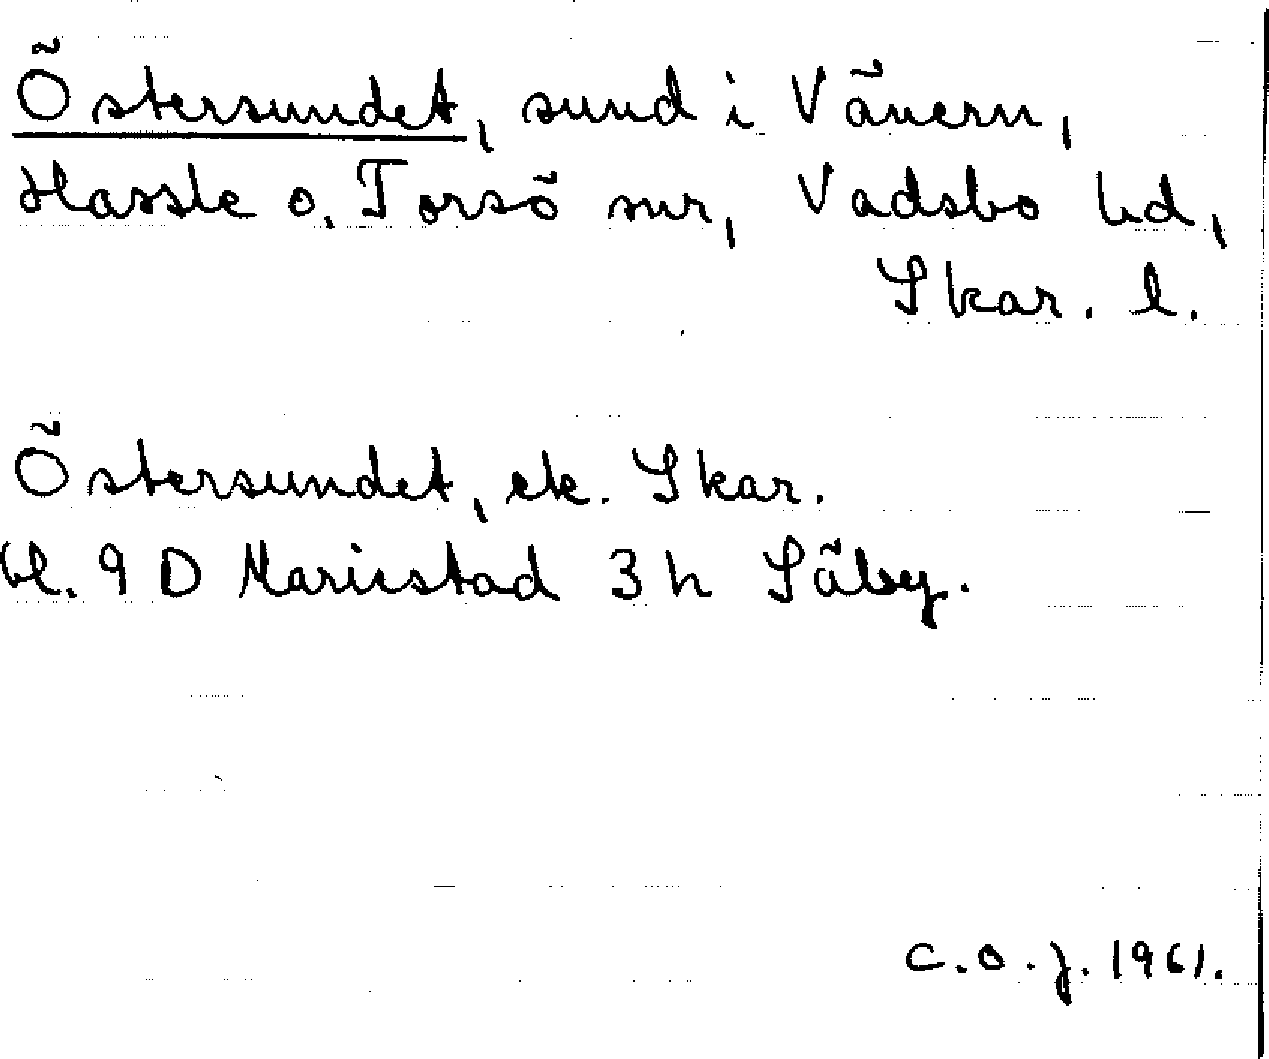 Östersundet, sund i Vänern,
Hassle o. Torsö snr, Vadsbo hd,
Skar. l.
Östersundet, ek. Skar.
bl. 9 D Mariestad 3 h Säby.
C.O.J. 1961.